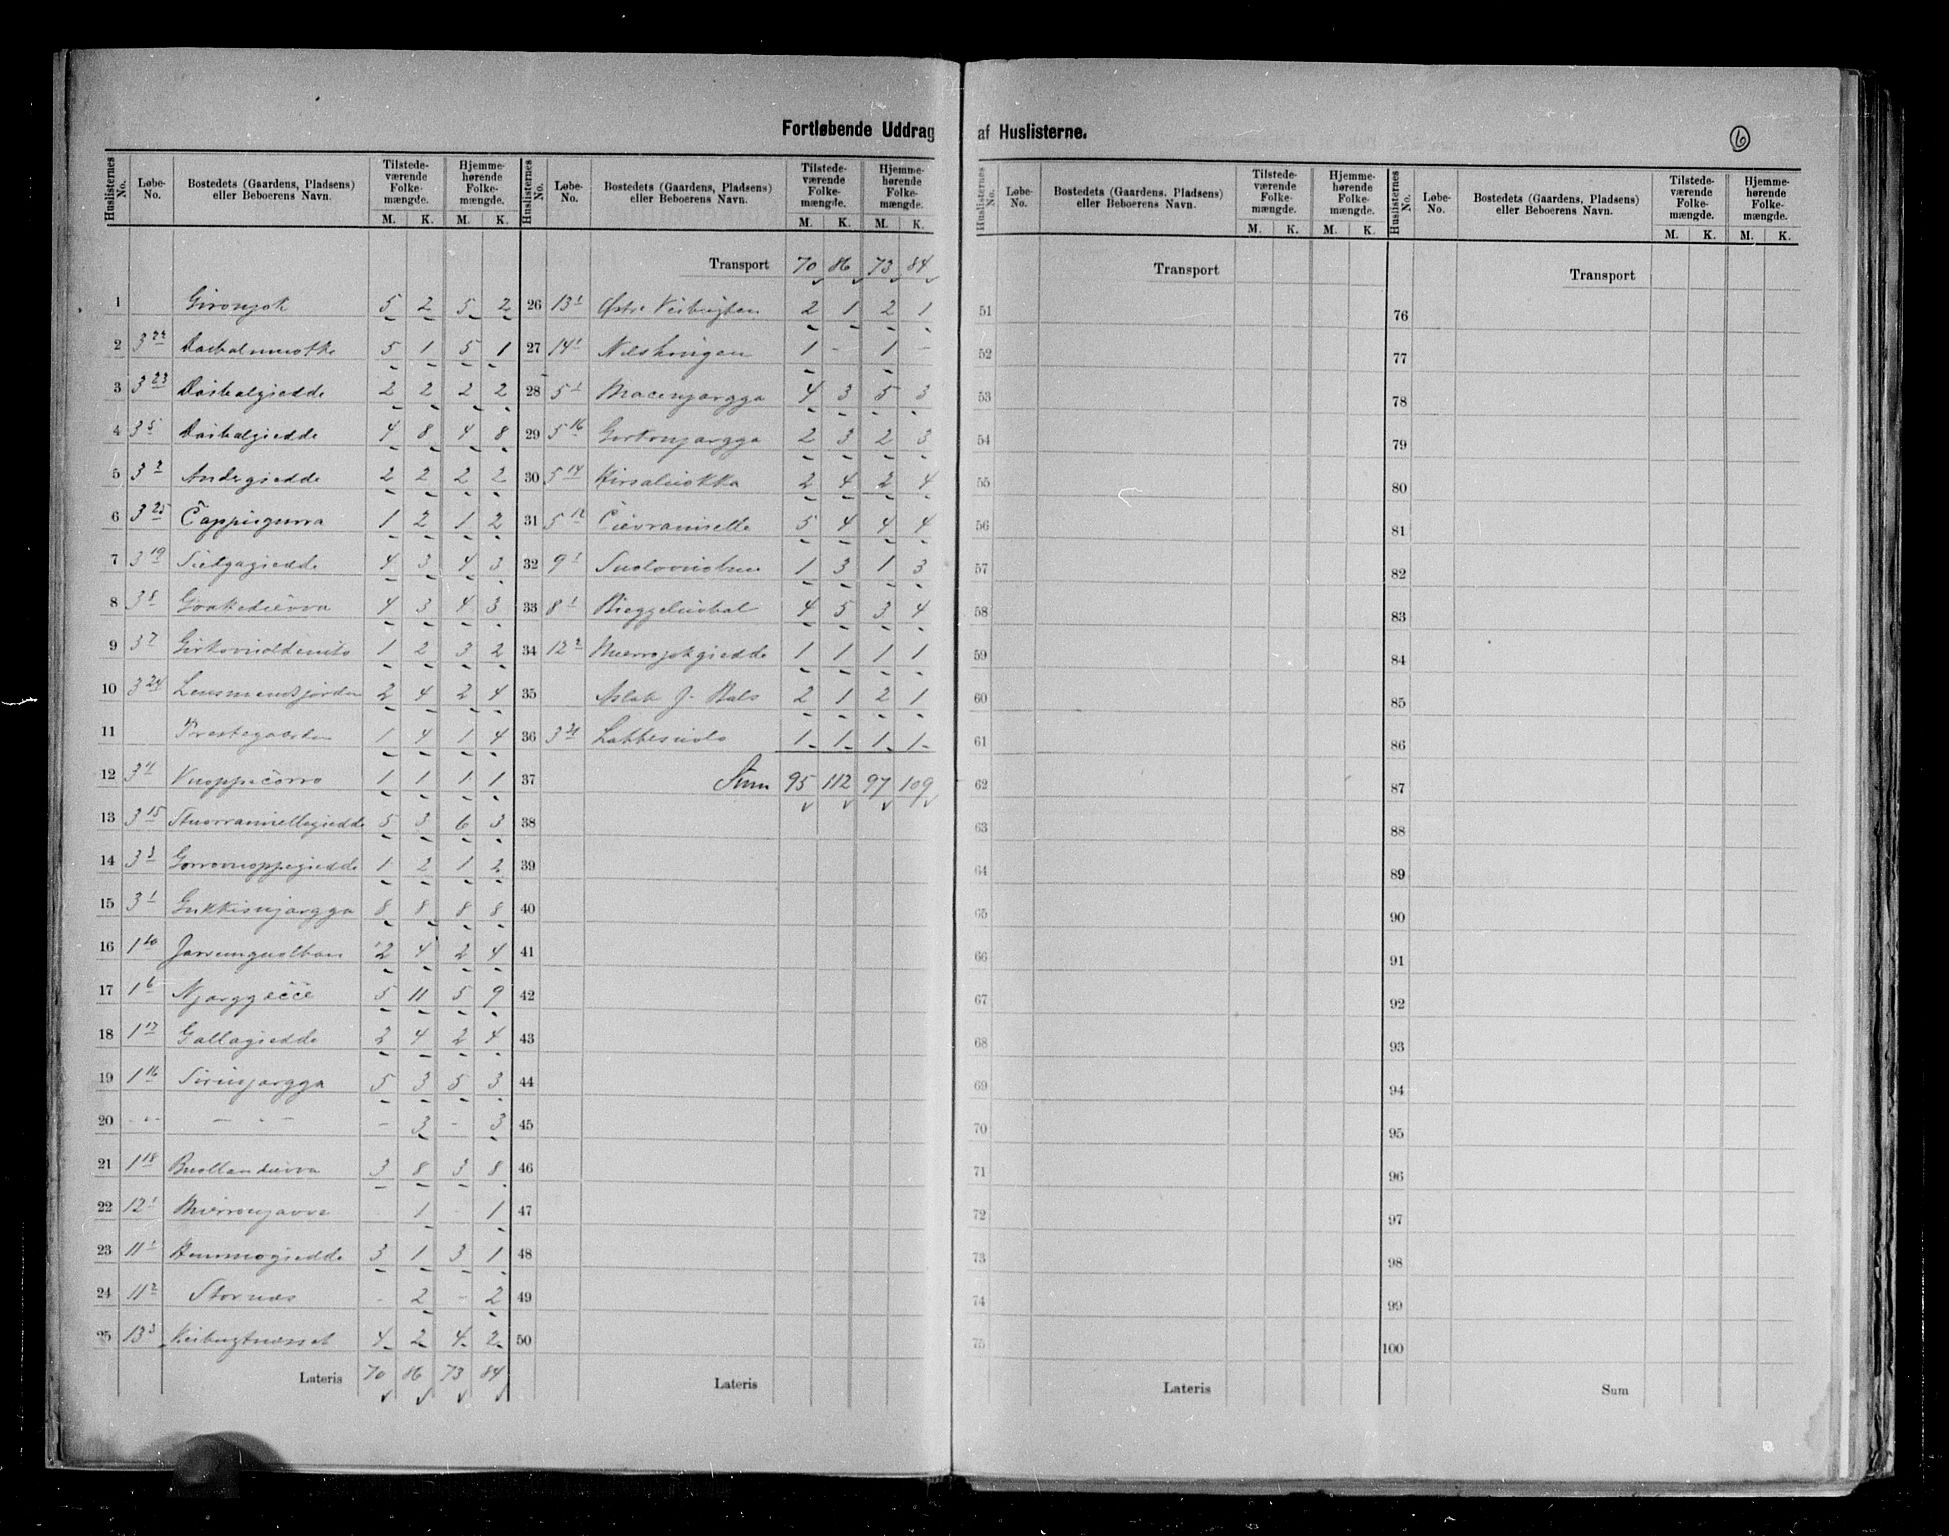 Fortløbende Uddrag af Huslisterne.
6
Huslisternes No. Løbe-No. Bostedets (Gaardens, Pladsen) eller Beboerens Navn. Tilstedeværende Folkemængde. M. K. Hjemmehørende Folkemængde. M. K.
1 Gironjok 5 2 5 2
2 3 22 Daibalmuotke 5 1 5 1
3 3 23 Daibalgiedde 2 2 2 2
4 3 5 Daibalgiedde 4 8 4 8
5 3 2 Andergiedde 2 2 2 2
6 3 25 Čappisgurra 1 2 1 2
7 3 19 Sielgagiedde 4 3 4 3
8 3 8 Goakedievva 4 3 4 3
9 3 7 1 2 3 2
10 3 24 Lensmansjorden 2 4 2 4
11 Prestegaarden 1 4 1 4
12 3 4 Vuoppečorro 1 1 1 1
13 3 15 Stuorraniellegiedde 5 3 6 3
14 3 3 Gorrovuoppegiedde 1 2 1 2
15 3 1 Gukkisnjargga 8 8 8 8
16 1 20 2 4 2 4
17 1 6 Njarggečče 5 11 5 9
18 1 17 Gallagiedde 2 4 2 4
19 1 16 Sirinjargga 5 3 5 3
20 - - - - - - 3 - 3
21 1 18 Buollandievva 3 8 3 8
22 12 1 Mierronjavve - 1 - 1
23 11 1 Hemmogiedde 3 1 3 1
24 11 2 Stornæs - 2 - 2
25 13 3 Veibugtnesset 4 2 4 2
Lateris 70 86 73 84
Huslisternes No. Løbe-No. Bostedets (Gaardens, Pladsen) eller Beboerens Navn. Tilstedeværende Folkemængde. M. K. Hjemmehørende Folkemængde. M. K.
Transport 70 86 73 84
26 13 1 Østre Veibugten 2 1 2 1
27 14 1 1 - 1 -
28 5 1 Macenjargga 4 3 5 3
29 5 16 Gorkonjargga 2 3 2 3
30 5 14 Kirsaluokka 2 4 2 4
31 5 12 Čievranielle 5 4 4 4
32 9 1 1 3 1 3
33 8 1 Bieggeluobal 4 5 3 4
34 12 2 Mierrojokgiedde 1 1 1 1
35 Aslak J. Bals 2 1 2 1
36 3 21 1 1 1 1
37 Sum 95 112 97 109
38
39
40
41
42
43
44
45
46
47
48
49
50
Lateris
Huslisternes No. Løbe-No. Bostedets (Gaardens, Pladsen) eller Beboerens Navn. Tilstedeværende Folkemængde. M. K. Hjemmehørende Folkemængde. M. K.
Transport
51
52
53
54
55
56
57
58
59
60
61
62
63
64
65
66
67
68
69
70
71
72
73
74
75
Lateris
Huslisternes No. Løbe-No. Bostedets (Gaardens, Pladsen) eller Beboerens Navn. Tilstedeværende Folkemængde. M. K. Hjemmehørende Folkemængde. M. K.
Transport
76
77
78
79
80
81
82
83
84
85
86
87
88
89
90
91
92
93
94
95
96
97
98
99
100
Sum